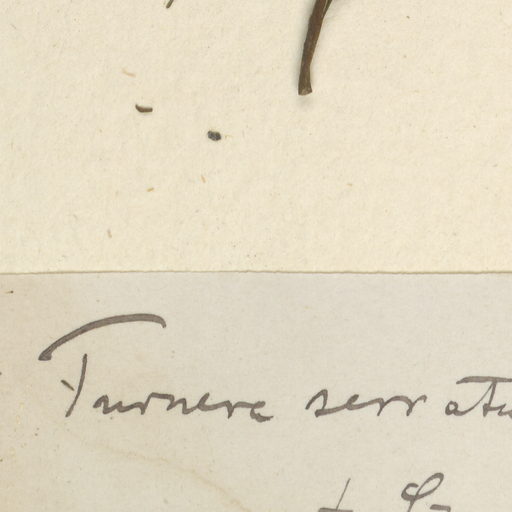 Turnera serratu